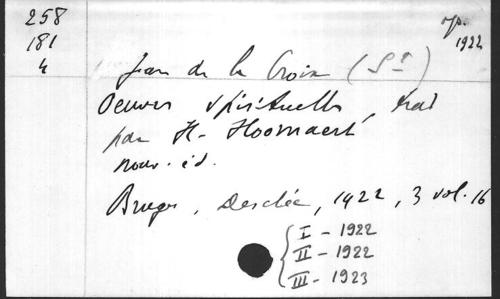 258
181
4
op.
1922
Jean de la Croix (St)
Oeuvres spirituelles, trad
par H. Hoornaert
nouv. éd.
Bruges, Desclée, 1922, 3 vol. 16
I - 1922
II - 1922
III - 1923